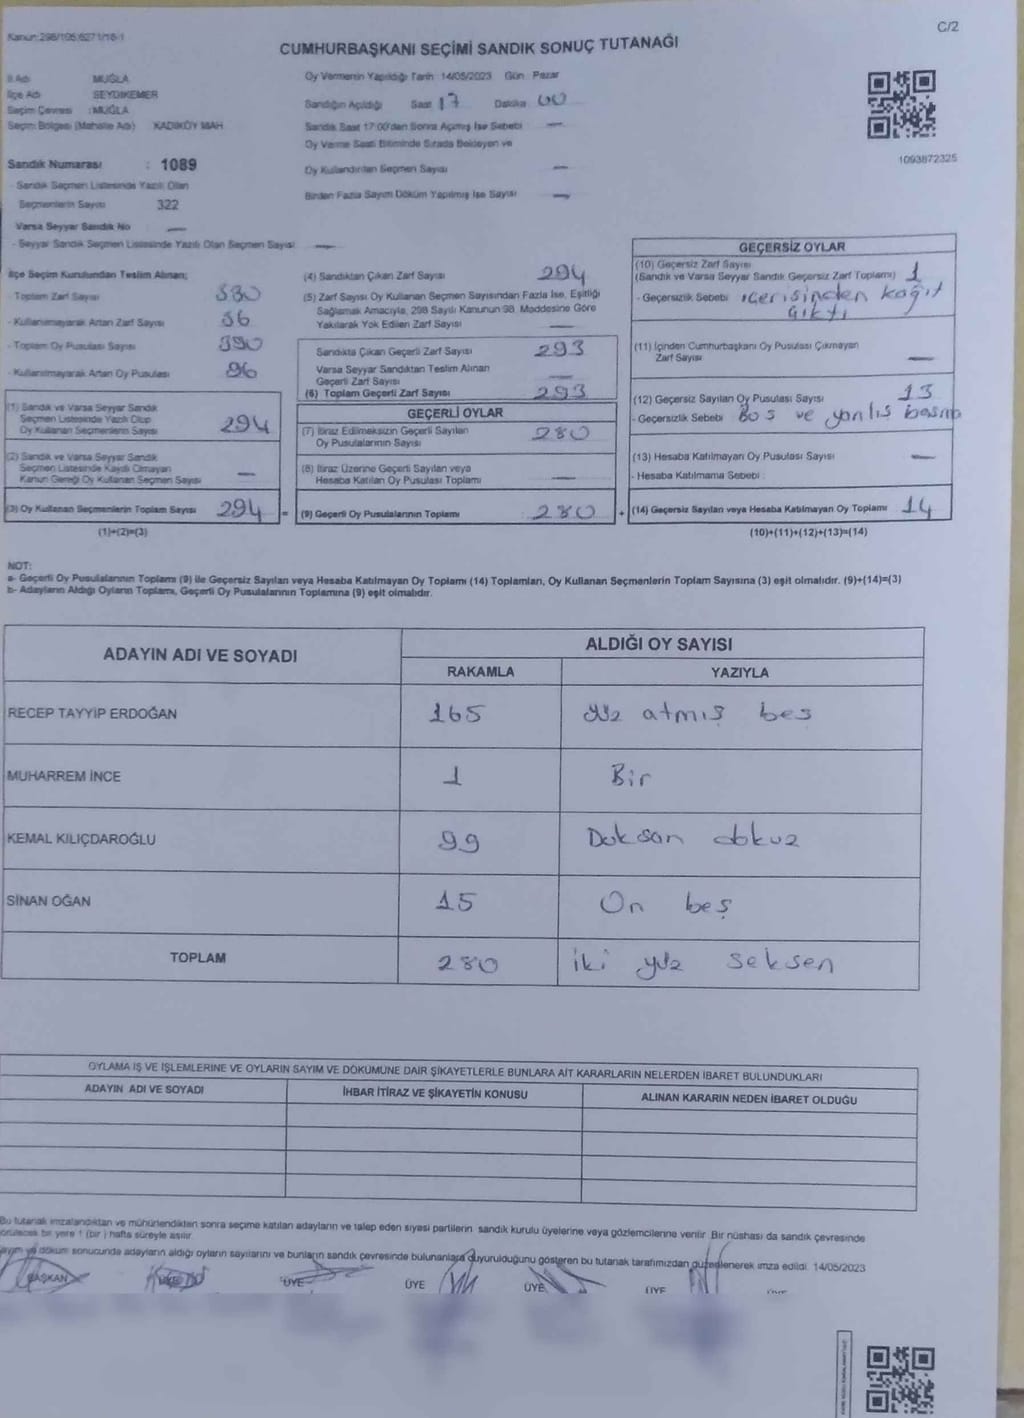 Kanun:298/195;6271/16-1
C/2
CUMHURBAŞKANI SEÇİMİ SANDIK SONUÇ TUTANAĞI
İl Adı MUĞLA
İlçe Adı SEYDİKEMER
Seçim Çevresi : MUĞLA
Seçim Bölgesi (Mahalle Adı) KADIKÖY MAH.
Sandık Numarası : 1089
- Sandık Seçmen Listesinde Yazılı Olan
Seçmenlerin Sayısı 322
Varsa Seyyar Sandık No —
- Seyyar Sandık Seçmen Listesinde Yazılı Olan Seçmen Sayısı —
Oy Vermenin Yapıldığı Tarih :14/05/2023 Gün : Pazar
Sandığın Açıldığı Saat 17 Dakika 00
Sandık Saat 17:00'den Sonra Açılmış İse Sebebi —
Oy Verme Saati Bitiminde Sırada Bekleyen ve
Oy Kullandırılan Seçmen Sayısı —
Birden Fazla Sayım Döküm Yapılmış İse Sayısı —
1093872325
İlçe Seçim Kurulundan Teslim Alınan;
- Toplam Zarf Sayısı
- Kullanılmayarak Artan Zarf Sayısı
- Toplam Oy Pusulası Sayısı
- Kullanılmayarak Artan Oy Pusulası
(1) Sandık ve Varsa Seyyar Sandık
Seçmen Listesinde Yazılı Olup
Oy Kullanan Seçmenlerin Sayısı 294
(2) Sandık ve Varsa Seyyar Sandık
Seçmen Listesinde Kayıtlı Olmayan
Kanun Gereği Oy Kullanan Seçmen Sayısı —
(3) Oy Kullanan Seçmenlerin Toplam Sayısı 294 =
(1)+(2)=(3)
(4) Sandıktan Çıkan Zarf Sayısı 294
(5) Zarf Sayısı Oy Kullanan Seçmen Sayısından Fazla İse, Eşitliği
Sağlamak Amacıyla, 298 Sayılı Kanunun 98. Maddesine Göre
Yakılarak Yok Edilen Zarf Sayısı —
Sandıkta Çıkan Geçerli Zarf Sayısı 293
Varsa Seyyar Sandıktan Teslim Alınan
Geçerli Zarf Sayısı —
(6) Toplam Geçerli Zarf Sayısı 293
GEÇERLİ OYLAR
(7) İtiraz Edilmeksizin Geçerli Sayılan
Oy Pusulalarının Sayısı 280
(8) İtiraz Üzerine Geçerli Sayılan veya
Hesaba Katılan Oy Pusulası Toplamı —
(9) Geçerli Oy Pusulalarının Toplamı : 280 +
GEÇERSİZ OYLAR
(10) Geçersiz Zarf Sayısı
(Sandık ve Varsa Seyyar Sandık Geçersiz Zarf Toplamı) 1
- Geçersizlik Sebebi içerisinden kağıt
çıktı
(11) İçinden Cumhurbaşkanı Oy Pusulası Çıkmayan
Zarf Sayısı —
(12) Geçersiz Sayılan Oy Pusulası Sayısı 13
- Geçersizlik Sebebi Boş ve yanlış basma
(13) Hesaba Katılmayan Oy Pusulası Sayısı —
- Hesaba Katılmama Sebebi :
(14) Geçersiz Sayılan veya Hesaba Katılmayan Oy Toplamı 14
(10)+(11)+(12)+(13)=(14)
NOT:
a- Geçerli Oy Pusulalarının Toplamı (9) ile Geçersiz Sayılan veya Hesaba Katılmayan Oy Toplamı (14) Toplamları, Oy Kullanan Seçmenlerin Toplam Sayısına (3) eşit olmalıdır. (9)+(14)=(3)
b- Adayların Aldığı Oyların Toplamı, Geçerli Oy Pusulalarının Toplamına (9) eşit olmalıdır.
ADAYIN ADI VE SOYADI
ALDIĞI OY SAYISI
RAKAMLA YAZIYLA
RECEP TAYYİP ERDOĞAN 165 yüz atmış beş
MUHARREM İNCE 1 Bir
KEMAL KILIÇDAROĞLU 99 Doksan dokuz
SİNAN OĞAN 15 On beş
TOPLAM 280 iki yüz seksen
OYLAMA İŞ VE İŞLEMLERİNE VE OYLARIN SAYIM VE DÖKÜMÜNE DAİR ŞİKAYETLERLE BUNLARA AİT KARARLARIN NELERDEN İBARET BULUNDUKLARI
ADAYIN ADI VE SOYADI İHBAR İTİRAZ VE ŞİKAYETİN KONUSU ALINAN KARARIN NEDEN İBARET OLDUĞU
Bu tutanak imzalandıktan ve mühürlendikten sonra seçime katılan adayların ve talep eden siyasi partilerin, sandık kurulu üyelerine veya gözlemcilerine verilir. Bir nüshası da sandık çevresinde
görülecek bir yere 1 (bir ) hafta süreyle asılır.
Sayım ve döküm sonucunda adayların aldığı oyların sayılarını ve bunların sandık çevresinde bulunanlara duyurulduğunu gösteren bu tutanak tarafımızdan düzenlenerek imza edildi. 14/05/2023
BAŞKAN ÜYE ÜYE ÜYE ÜYE ÜYE